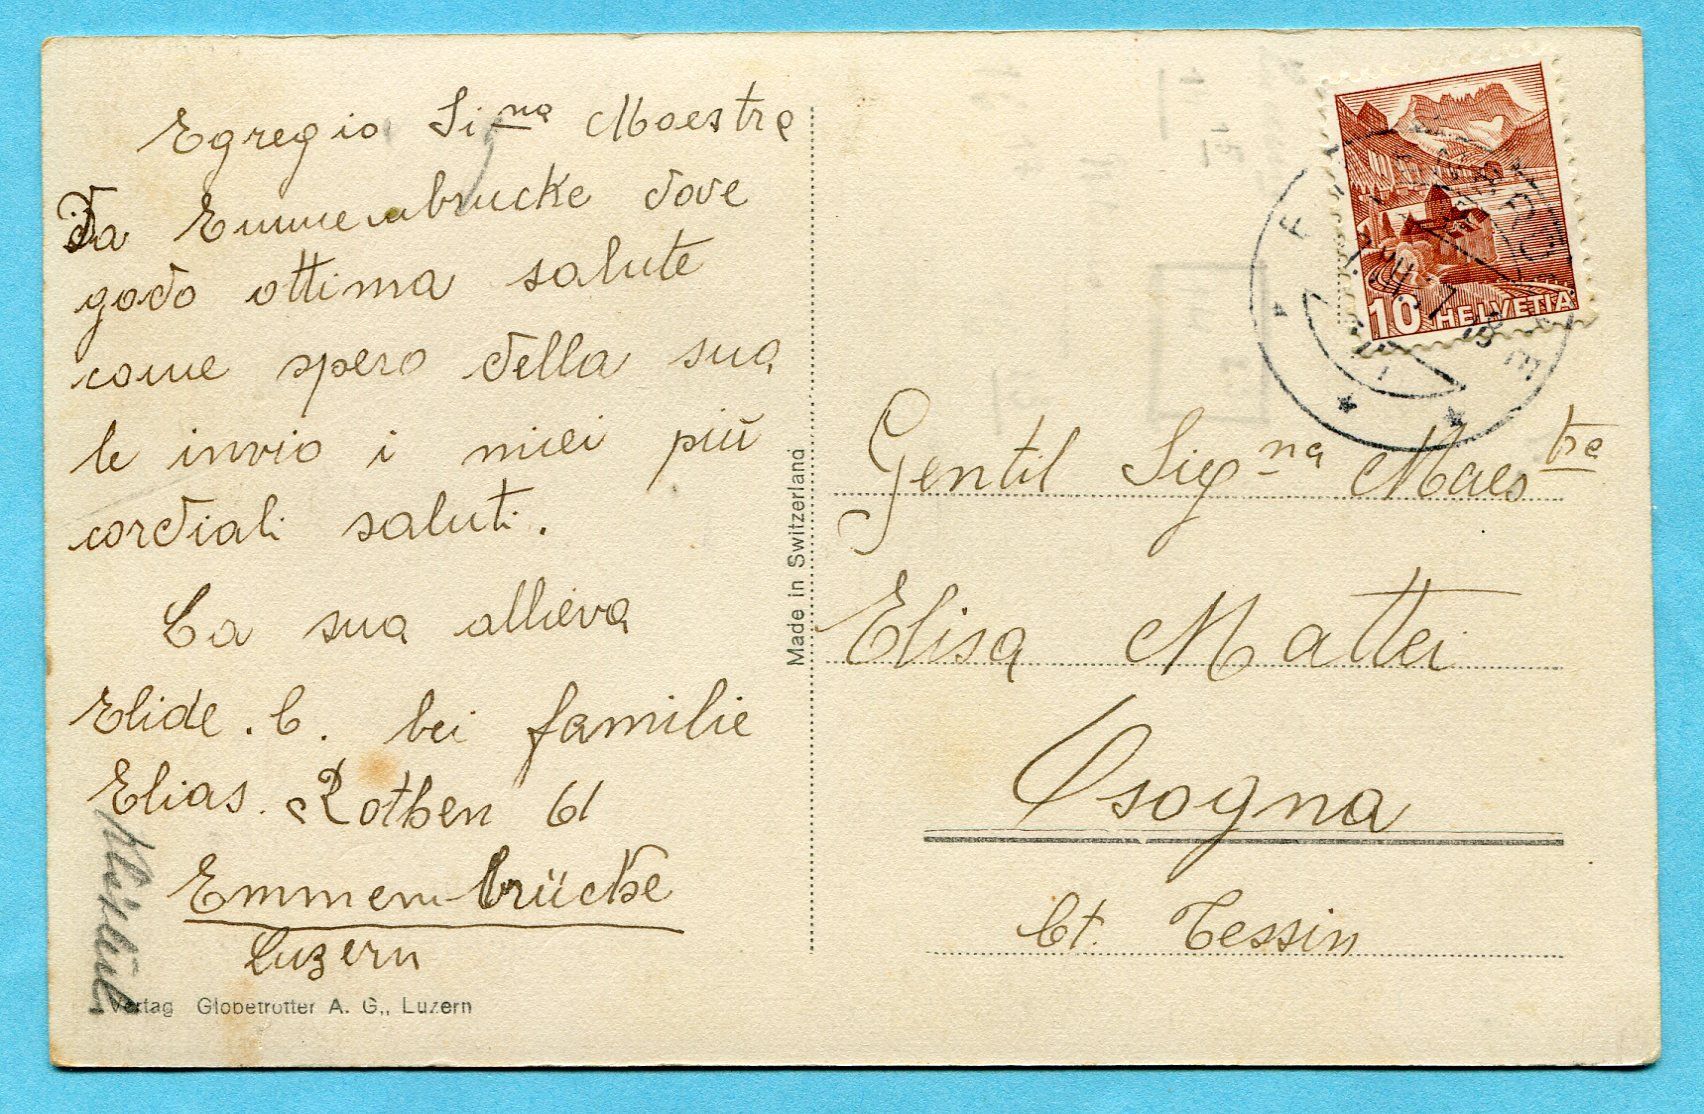 Egregio Si<sup>na</sup> Maestra
Da Emmenbrucke dove
godo ottima salute
come spero della sua
le invio i miei più
cordiali saluti.
La sua allieva
Elide . C. bei familie
Elias. Rothen 61
Emmenbrücke
Luzern
Verlag Globetrotter A. G., Luzern
Made in Switzerland
10 HELVETIA
Gentil Sig<sup>na</sup> Maes<sup>tra</sup>
Elisa Mattei
Osogna
Ct. Tessin